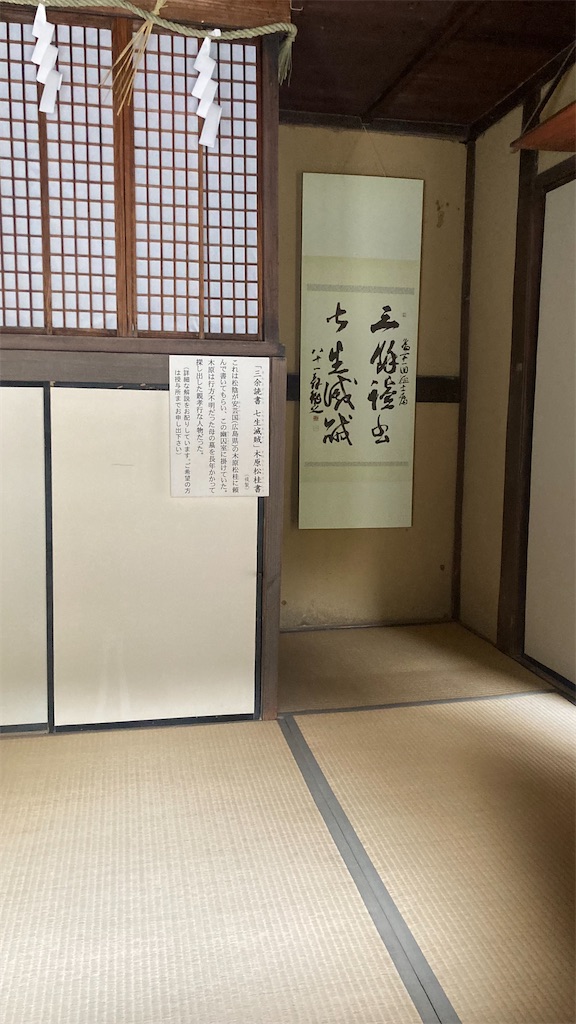 三餘讀書
七生滅賊
「三余読書 七生滅賊」木原松桂書
(複製)
これは松陰が安芸国(広島県)の木原松桂に頼
んで書いてもらい、この幽囚室に掛けていた。
木原は行方不明だった母の墓を長年かかって
探し出した親孝行な人物だった。
(詳細な解説をお配りしています。ご希望の方
は授与所までお申し出下さい)